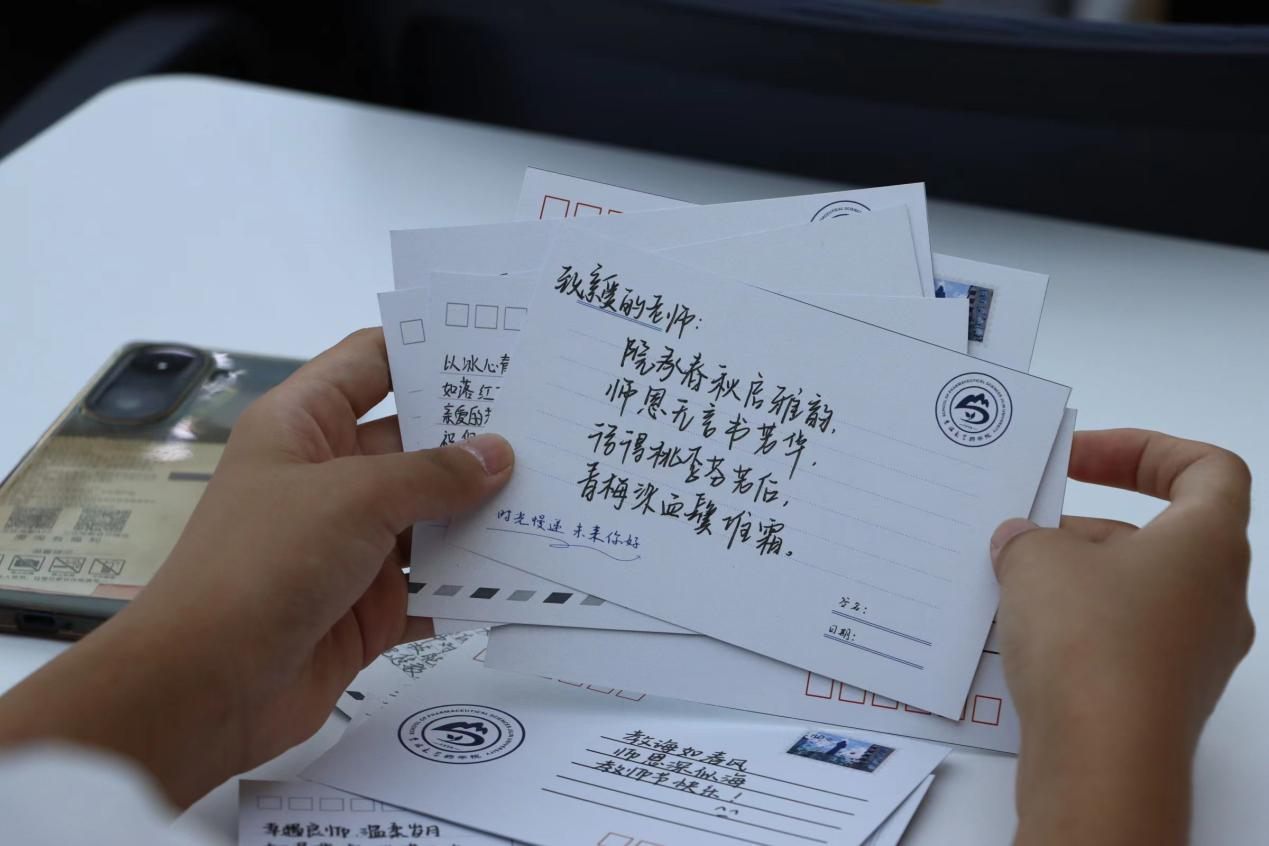 致亲爱的老师:
院承春秋启雅韵,
师恩无言书芳华,
语谓桃李芬芳后,
青梅染血鬓堆霜。
时光慢递 未来你好
签名:
日期:
以冰心
如落红
亲爱的
教诲如春风
师恩深似海
教师节快乐!
^^
幸遇良师,温柔岁月
SCHOOL OF PHARMACEUTICAL SCIENCES